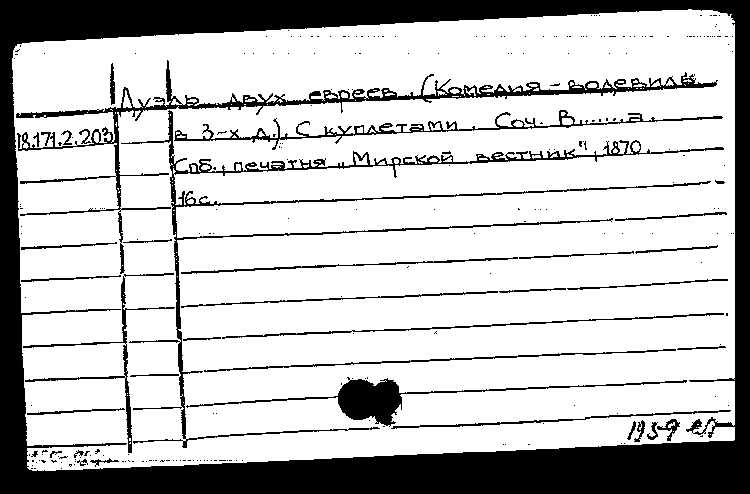 Дуэль двух евреев. (Комедия-водевиль
18.171.2.203 в 3-х д.). С куплетами. Соч. В.......а.
Спб., печатня „Мирской вестник", 1870.
16с.
1959